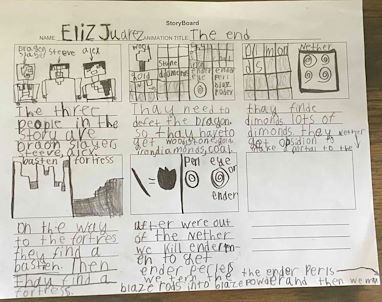 StoryBoard
NAME Eliz Juarez ANIMATION TITLE: The end
Dragon slayer steeve alex
wood
gold
Stone
diamonds
ender eye
ender perl
blaze powder
Dimond
Nether
The three people in the story are draon slayer steeve, alex.
Thay need to defet the dragon so thay have to get wood, stone, gold, iron, diamonds, coal
thay finde dimonds lots of dimonds. they get opsidion to make a portal to the nether
basten fortress
Perl eye or ender
on the way to the fortres they find a basten. Then thay find a fortress.
after were out of the Nether we kill endermen to get ender perles we tern the blaze rods into blaze powder and then we
the ender Perls